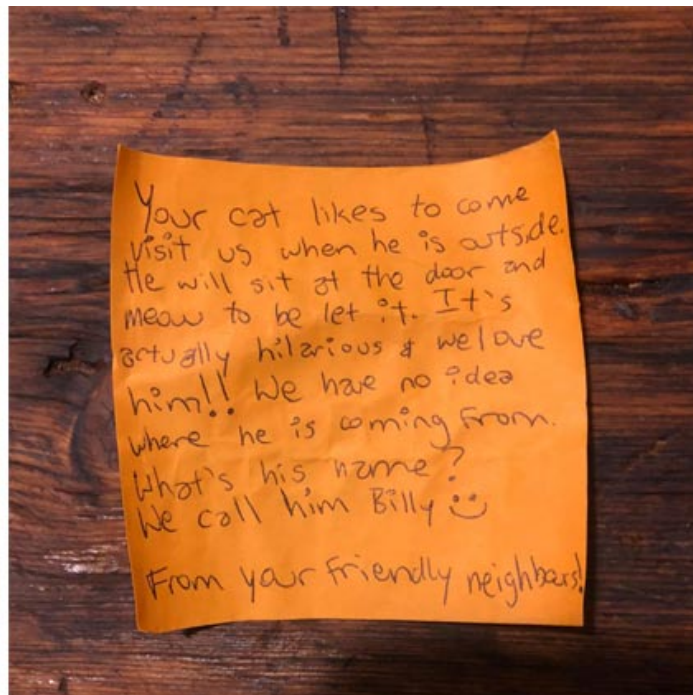 Your cat likes to come
visit us when he is outside.
He will sit at the door and
meow to be let it. It's
actually hilarious & we love
him!! We have no idea
where he is coming from.
What's his name?
We call him Billy :)
From your friendly neighbors!